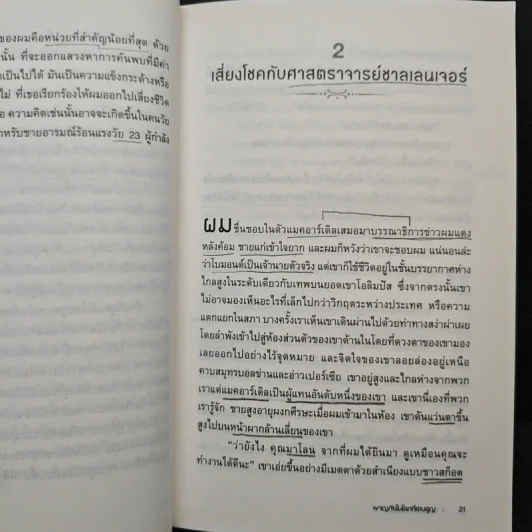 ของผมคือหน่วยที่สำคัญน้อยที่สุด ด้วย
นั้น ที่จะออกแสวงหาการค้นพบที่มีค่า
เป็นไปได้ มันเป็นความแข็งกระด้างหรือ
ไม่ ที่เธอเรียกร้องให้ผมออกไปเสี่ยงชีวิต
อ ความคิดเช่นนั้นอาจจะเกิดขึ้นในคนวัย
หรับชายอารมณ์ร้อนแรงวัย 23 ผู้กำลัง
2
เสี่ยงโชคกับศาสตราจารย์ชาลเลนเจอร์
ผม ชื่นชอบในตัวแมคอาร์เดิลเสมอมาบรรณาธิการข่าวผมแดง
หลังค้อม ชายแก่เข้าใจยาก และผมก็หวังว่าเขาจะชอบผม แน่นอนล่ะ
ว่าโบมอนต์เป็นเจ้านายตัวจริง แต่เขาก็ใช้ชีวิตอยู่ในชั้นบรรยากาศห่าง
ไกลสูงในระดับเดียวกับเทพบนยอดเขาโอลิมปัส ซึ่งจากตรงนั้นเขา
ไม่อาจมองเห็นอะไรที่เล็กไปกว่าวิกฤตระหว่างประเทศ หรือความ
แตกแยกในสภา บางครั้งเราเห็นเขาเดินผ่านไปด้วยท่าทางสง่าผ่าเผย
โดยลำพังเข้าไปสู่ห้องส่วนตัวของเขาด้านในโดยที่ดวงตาของเขามอง
เลยออกไปอย่างไร้จุดหมาย และจิตใจของเขาลอยล่องอยู่เหนือ
คาบสมุทรบอลข่านและอ่าวเปอร์เซีย เขาอยู่สูงและไกลห่างจากพวก
เราแต่แมคอาร์เดิลเป็นผู้แทนอันดับหนึ่งของเขา และเขานี่เองที่พวก
เรารู้จัก ชายสูงอายุผงกศีรษะเมื่อผมเข้ามาในห้อง เขาดันแว่นตาขึ้น
สูงไปบนหน้าผากล้านเลี่ยนของเขา
“ว่ายังไง คุณมาโลน จากที่ผมได้ยินมา ดูเหมือนคุณจะ
ทำงานได้ดีนะ” เขาเอ่ยขึ้นอย่างมีเมตตาด้วยสำเนียงแบบชาวสก็อต
ผจญภัยในโลกที่สาบสูญ : 21